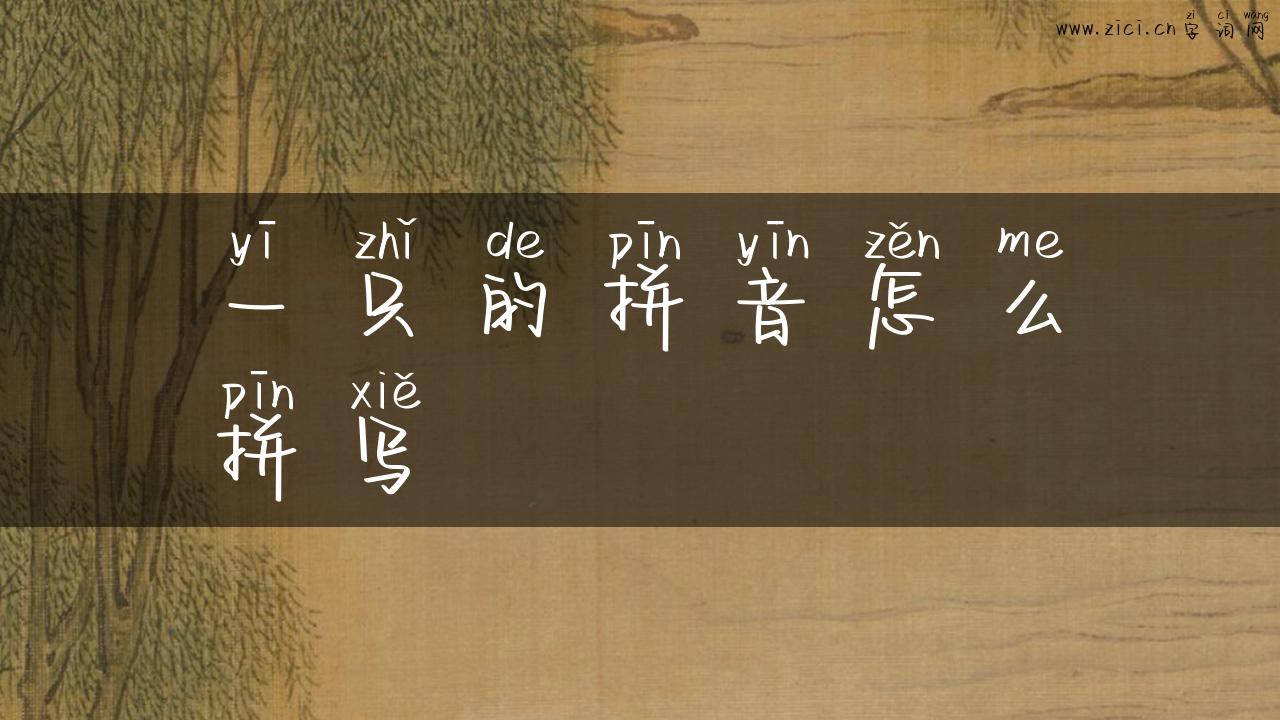 zì cí wǎng
www.zici.cn 字 词 网
yī zhǐ de pīn yīn zěn me
一 只 的 拼 音 怎 么
pīn xiě
拼 写